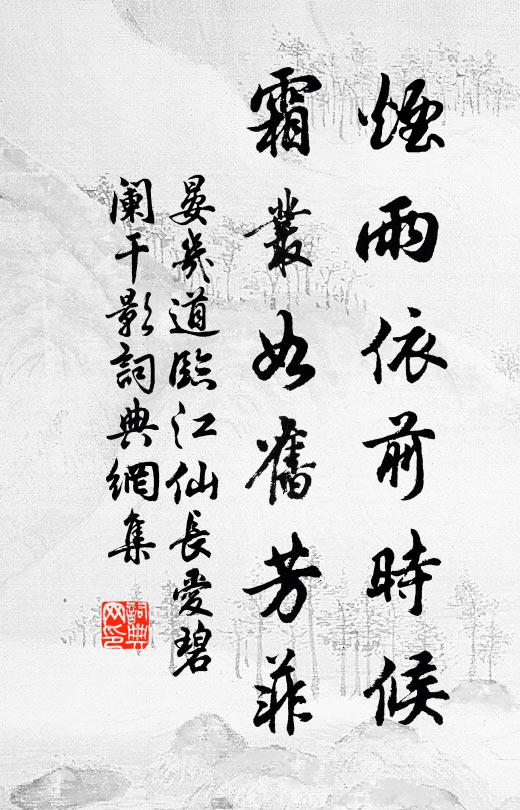 煙雨依前時候
霜叢如舊芳菲
晏幾道臨江仙長愛碧
闌干影詞典網集
詞典網印